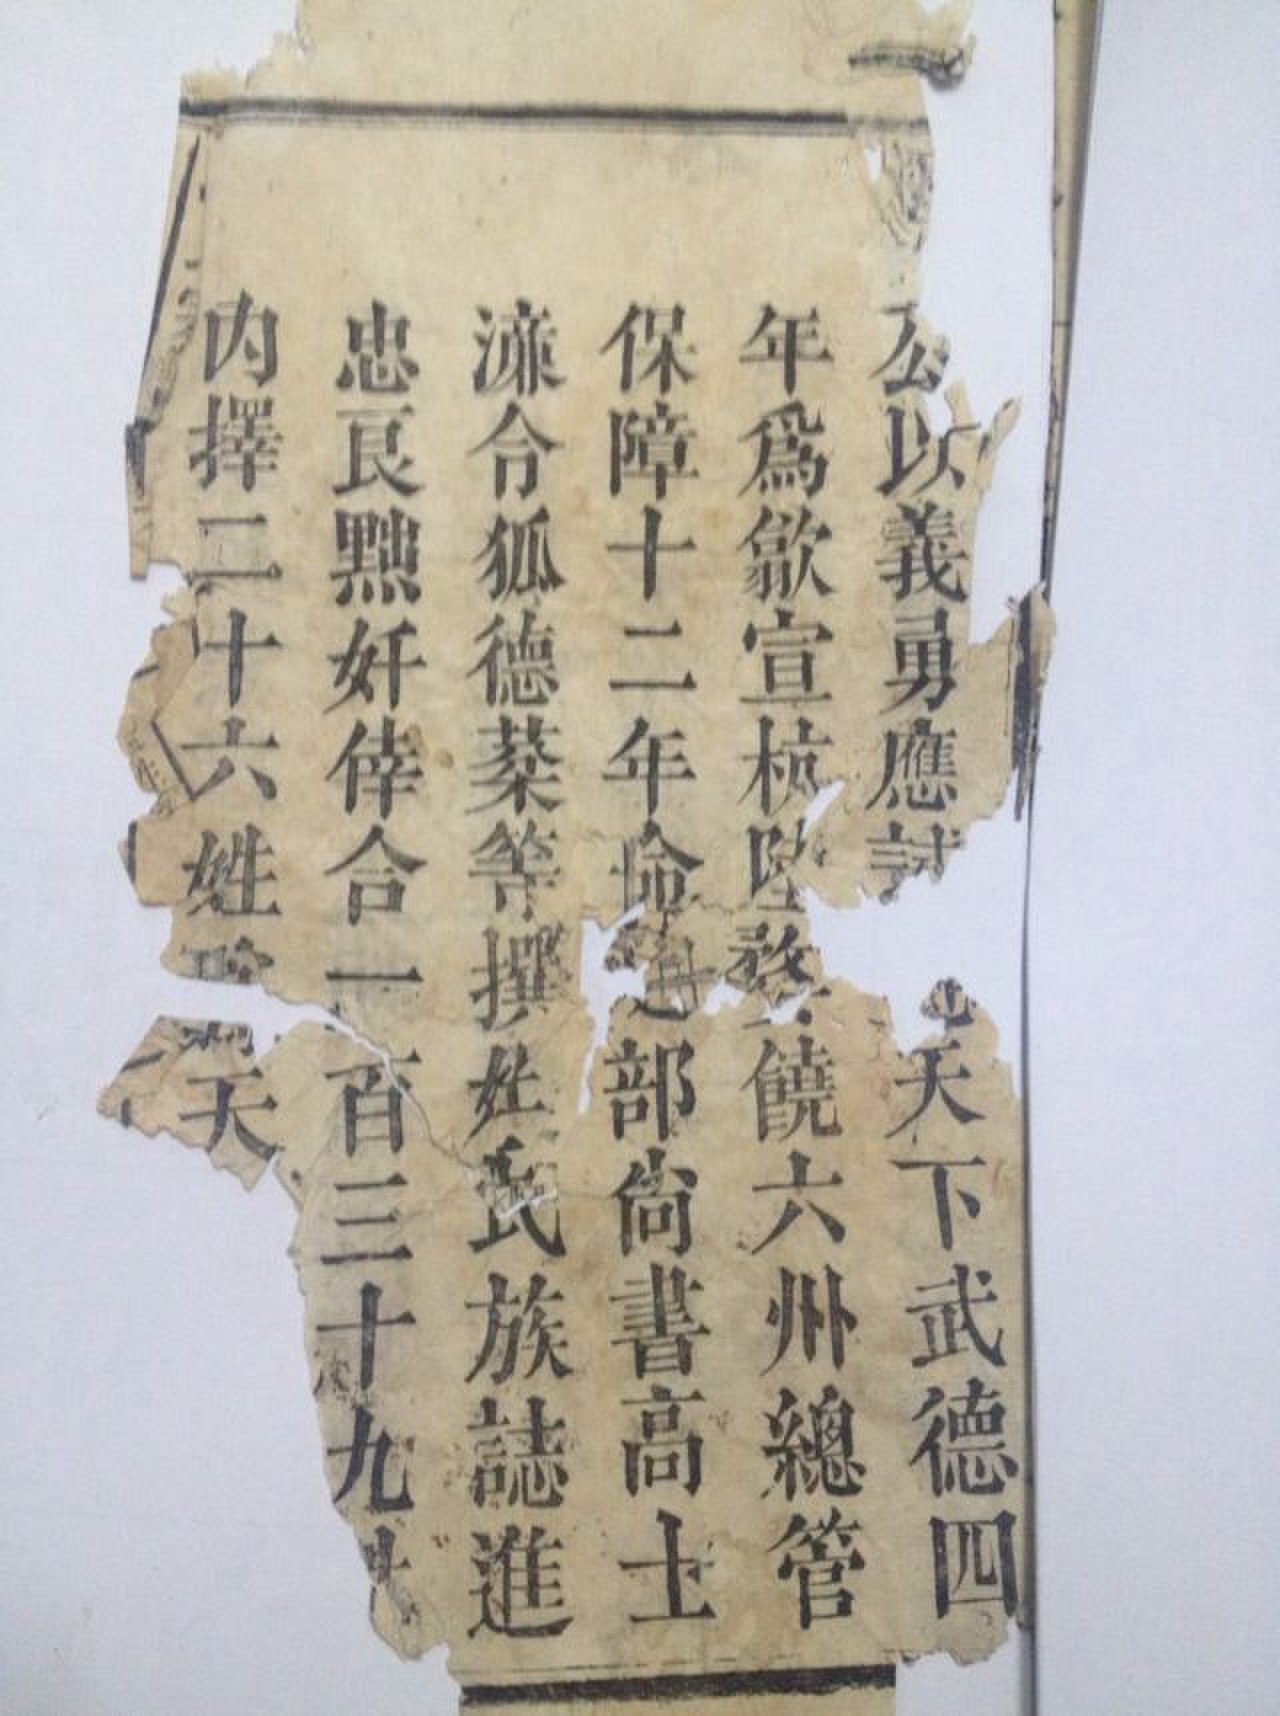 公以義勇應試天下武德四
年爲歙宣杭睦婺饒六州總管
保障十二年命部尚書高士
濂令狐德菜等撰姓氏族誌進
忠良黜奸倖合一百三十九
内擇二十六姓天